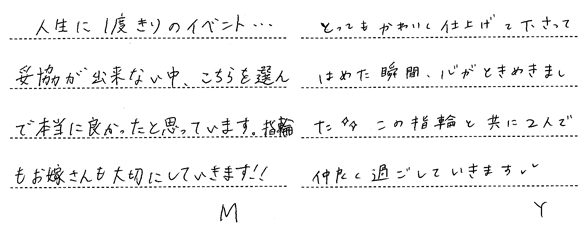 人生に1度きりのイベント…
妥協が出来ない中、こちらを選ん
で本当に良かったと思っています。指輪
もお嫁さんも大切にしていきます!!
M
とってもかわいく仕上げて下さって
はめた瞬間、心がときめきまし
た♡♡ この指輪と共に2人で
仲良く過ごしていきます
Y